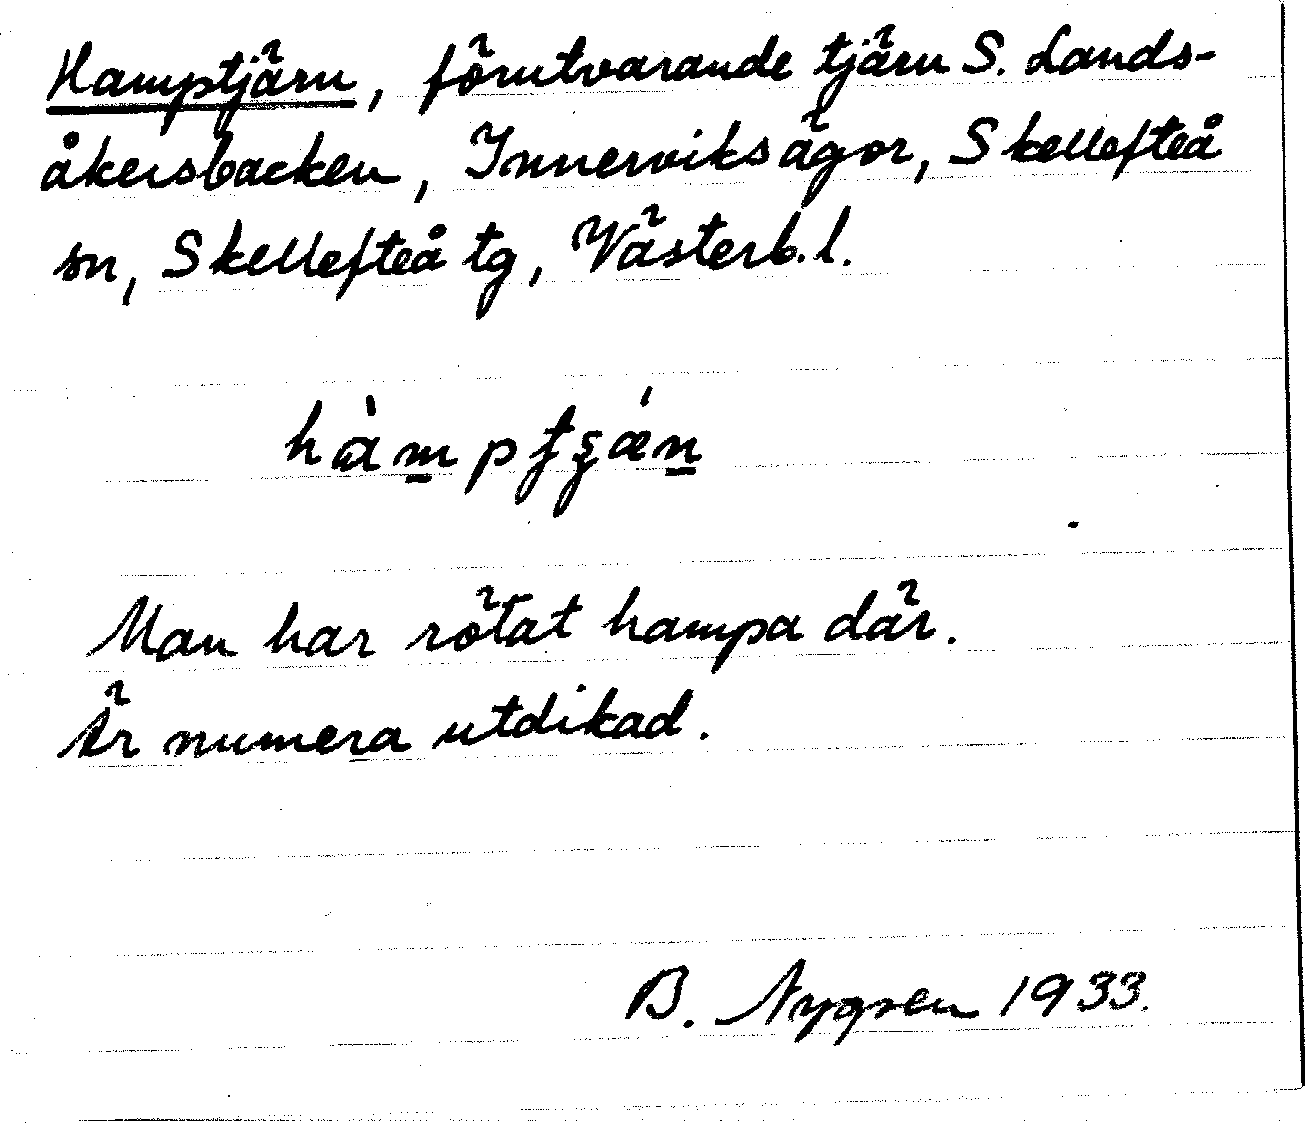 Hamptjärn, förutvarande tjärn S. Lands-
åkersbacken, Innerviks ägor, Skellefteå
sn, Skellefteå tg, Västerb. l.
Man har rötat hampa där.
Är numera utdikad.
B. Nygren 1933.